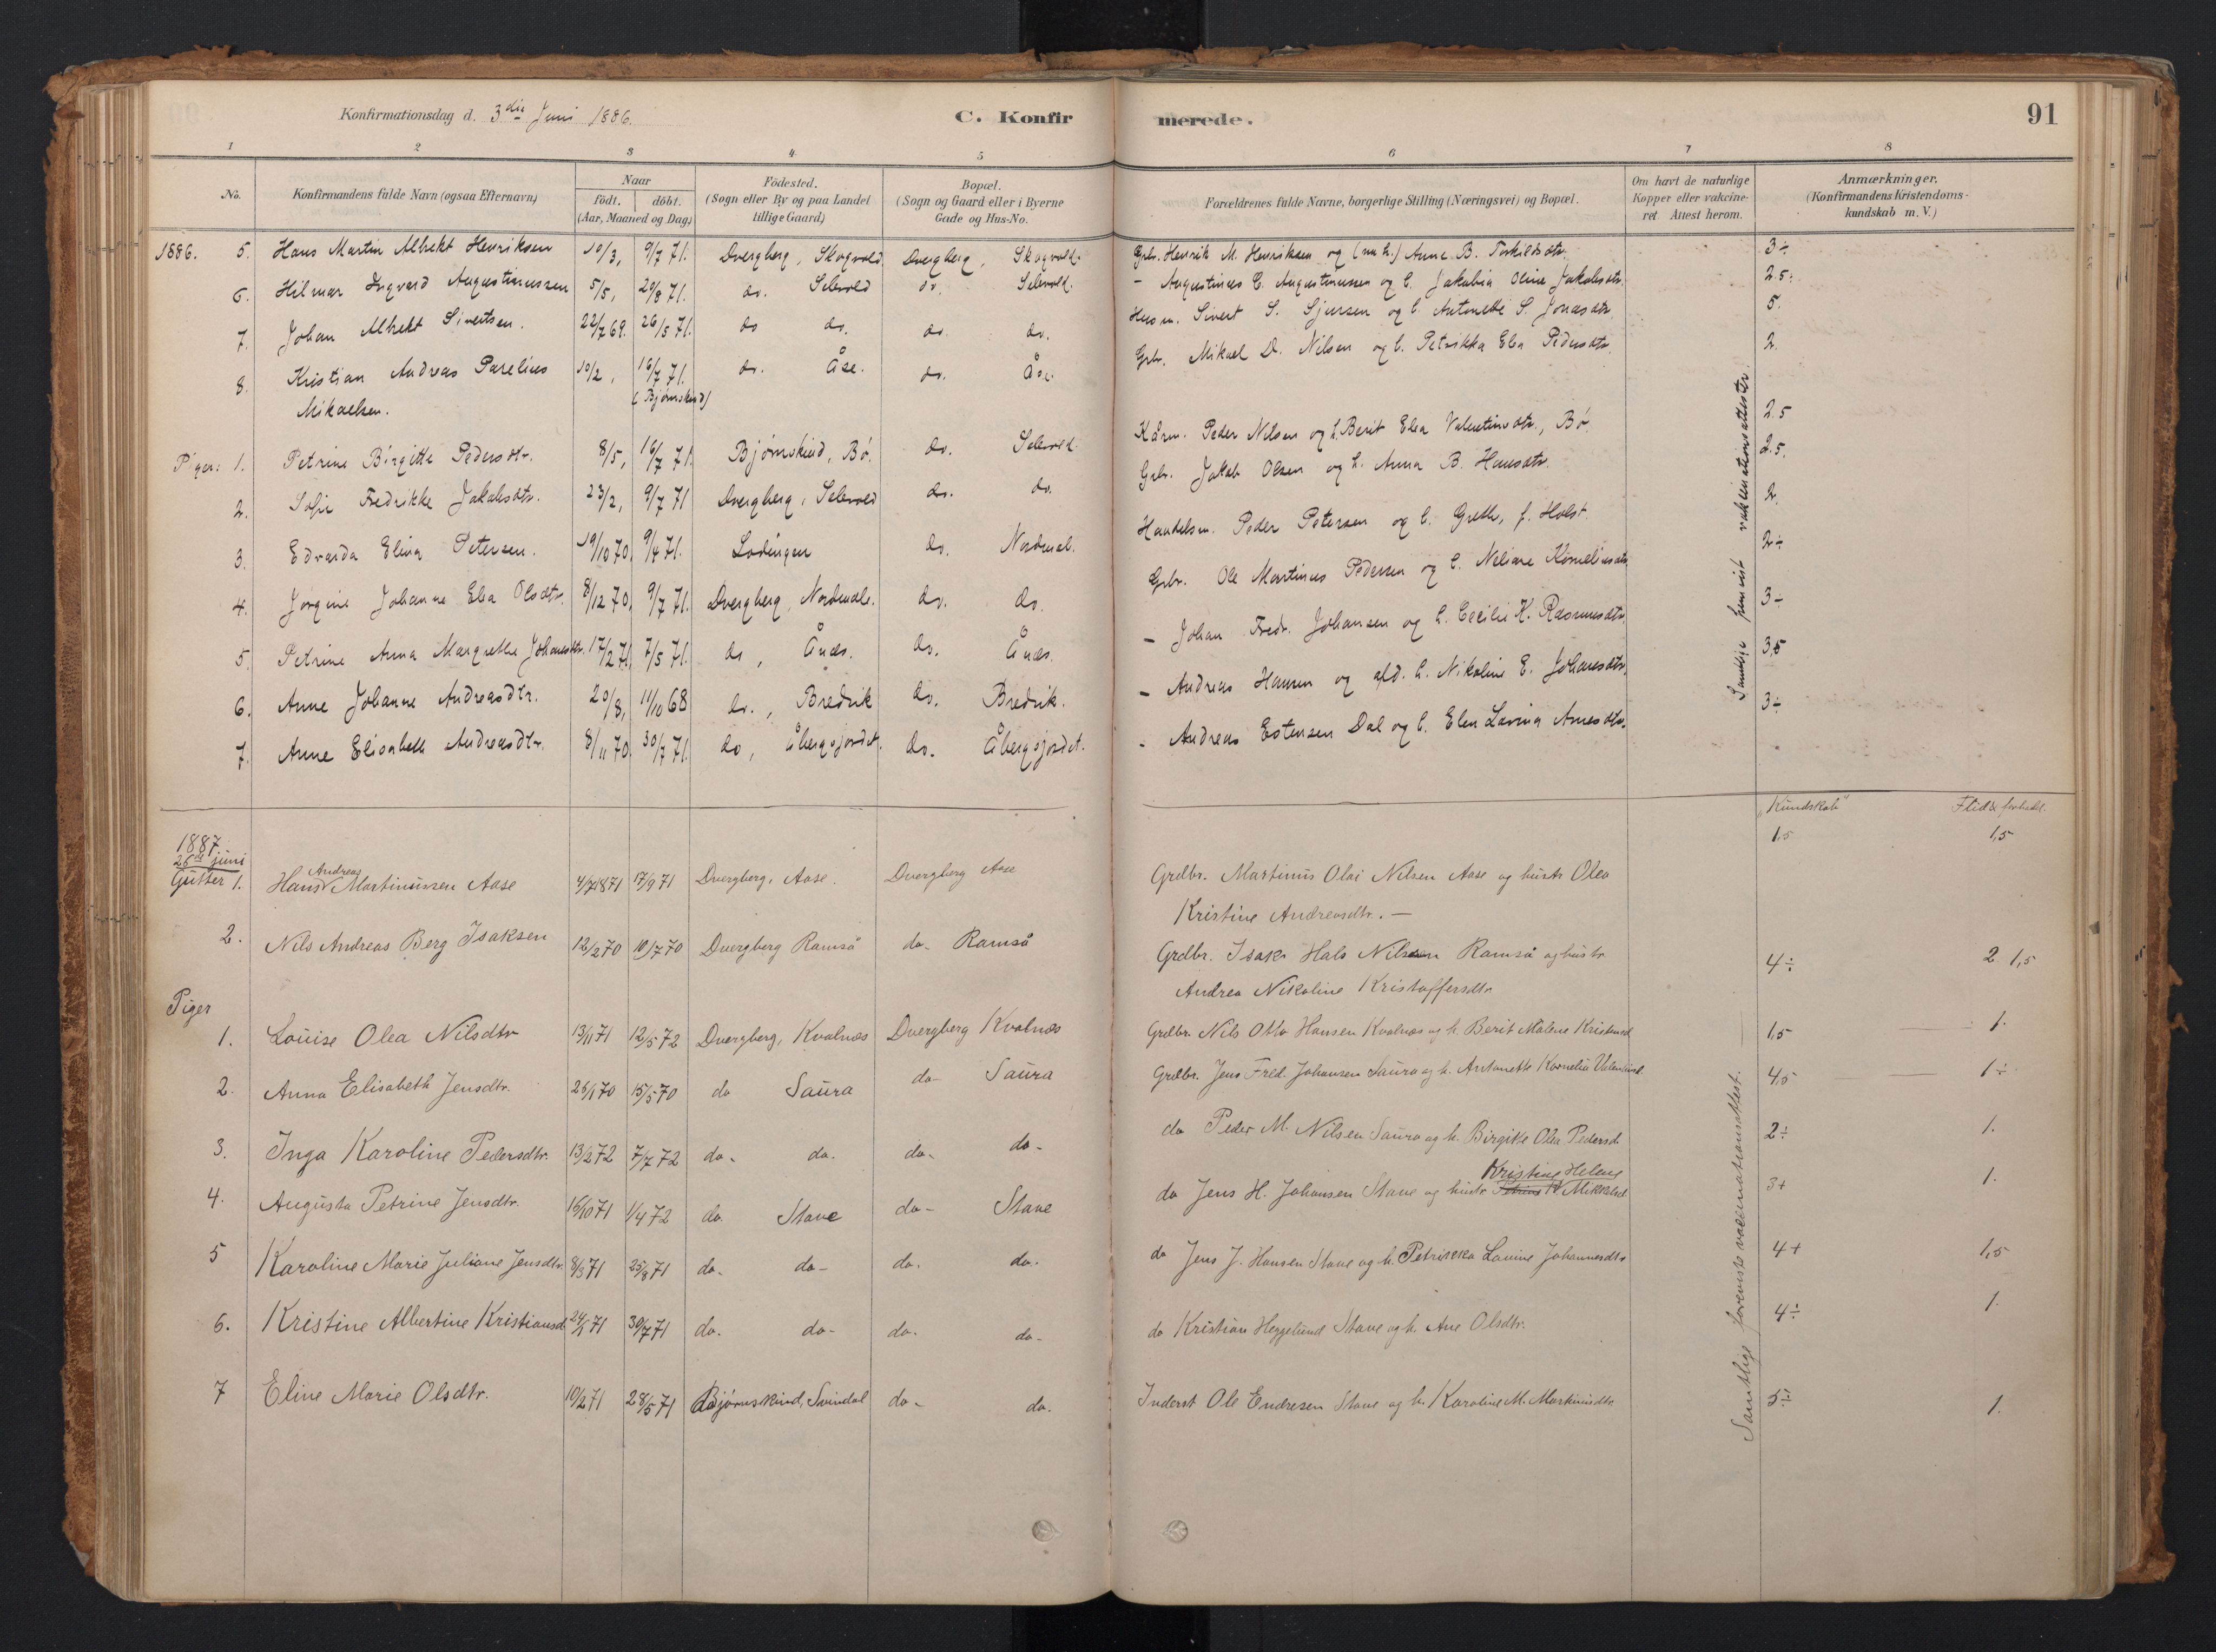 Konfirmationsdag d. 3die Juni 1886.
C. Konfirmerede.
91
1 2 3 4 5 6 7 8
No.
Konfirmandens fulde Navn (ogsaa Efternavn)
Naar
födt. döbt.
(Aar, Maaned og Dag)
Födested.
(Sogn eller By og paa Landet
tillige Gaard)
Bopæl.
(Sogn og Gaard eller i Byerne
Gade og Hus-No.
Forældrenes fulde Navne, borgerlige Stilling (Næringsvei) og Bopæl.
Om havt de naturlige
Kopper eller vakcine-
ret Attest herom.
Anmærkninger.
(Konfirmandens Kristendoms-
kundskab m. V.)
1886. 5. Hans Martin Albrekt Henriksen 10/3, 9/7 71. Dvergberg, Skogvold Dvergberg, Skogvold. Grbr. Henrik M. Henriksen og (nu h.) Anne B. Torkildsdtr. 3÷
6. Hilmar Ingvard Augustinussen 5/5, 20/8 71. do. Selevold do. Selevold. - Augustinus C. Augustinussen og h. Jakobia Oline Jakobsdtr. 2.5.
7. Johan Albrekt Sivertsen. 22/7 69. 26/5 71. do do. do. do. Husm. Sivert S. Sjursen og h. Antonette S. Jonasdtr. 5.
8. Kristian Andreas Parelius 10/2, 16/7 71. do. Åse. do. Åse. Grbr. Mikael D. Nilsen og h. Petrikka Elea Pedersdtr. 2.
Mikaelsen. (Bjørnskind)
Piger: 1. Petrine Birgitte Pedersdtr. 8/5, 16/7 71. Bjørnskind, Bø. do. Selevold. Kårm. Peder Nilsen og h. Berit Elea Valentinsdtr., Bø. 2.5
2. Sofie Fredrikke Jakobsdtr. 23/2, 9/7 71 Dvergberg, Selevold do. do. Grbr. Jakob Olsen og h. Anna B. Hansdtr. 2.5.
3. Edvarda Elina Petersen. 19/10 70. 9/4 71. Lødingen do. Nordmel. Handelsm. Peder Petersen og h. Grethe, f. Holst. 2.
4. Jørgine Johanne Elea Olsdtr. 8/12 70. 9/7 71. Dvergberg, Nordmele. do. do. Grbr. Ole Martinus Pedersen og h. Neliane Korneliusdtr. 2÷
5. Petrine Anna Margrethe Johansdtr. 17/2 71. 7/5 71. do, Ånes. do. Ånes. - Johan Fredr. Johansen og h. Cecilie K. Rasmusdtr. 3÷
6. Anne Johanne Andreasdtr. 20/8, 11/10 68 do., Bredvik do. Bredvik. - Andreas Hansen og afd. h. Nikoline E. Johansdtr. 3,5
7. Anne Elisabeth Andreasdtr. 8/11 70. 30/7 71. do, Åbergsjordet. do. Åbergsjordet. - Andreas Estensen Dal og h. Elen Lavina Arnesdtr. 3÷
Samtlige fremvist vakcinationsattester
"Kundskab" Flid & forhold.
1887.
26de juni
Gutter 1. Hans Andreas Martinussen Aase 4/7 1871 17/9 71 Dvergberg, Aase. Dvergberg Aase Grdbr. Martinus Olai Nilsen Aase og hustr Olea 1,5 1,5
Kristine Andreasdtr. —
2. Nils Andreas Berg Isaksen 12/2 70 10/7 70 Dvergberg Ramså do- Ramså Grdbr. Isak Hals Nilsen Ramså og hustr 4÷ 2 1,5
Andrea Nikoline Kristoffersdtr
Piger
1. Louise Olea Nilsdtr 13/11 71 12/5 72 Dvergberg, Kvalnæs Dvergberg Kvalnæs Grdbr. Nils Otto Hansen Kvalnæs og h. Berit Malene Kristensd 1,5 1.
2. Anna Elisabeth Jensdtr. 26/1 70 15/5 70 do Saura do- Saura Grdbr. Jens Fred. Johansen Saura og h. Antonette Kornelia Valentinsd 4,5 1÷
3. Inga Karoline Pedersdtr. 13/2 72 7/7 72 do- do. do- do- do Peder M. Nilsen Saura og h. Birgitte Olea Pedersd. 2÷ 1.
4. Augusta Petrine Jensdtr. 16/10 71 1/4 72 do. Stave do- Stave do Jens H. Johansen Stave og hustr Kristine Helene Mikkelsd 3+ 1.
5 Karoline Marie Juliane Jensdtr. 8/3 71 25/8 71 do- do- do. do. do Jens J. Hansen Stave og h. Petrikka Lavine Johannesdtr 4+ 1,5
6. Kristine Albertine Kristiansd 24/1 71 30/7 71 do. do- do. do- do Kristian Heggelund Stave og h. Ane Olsdtr. 4÷ 1.
7 Eline Marie Olsdtr. 10/2 71 28/5 71 Bjørnskind, Svindal do- do. Inderst Ole Endresen Stave og h. Karoline M. Markusdtr 5÷ 1.
Samtlige foreviste vaccinationsattest.